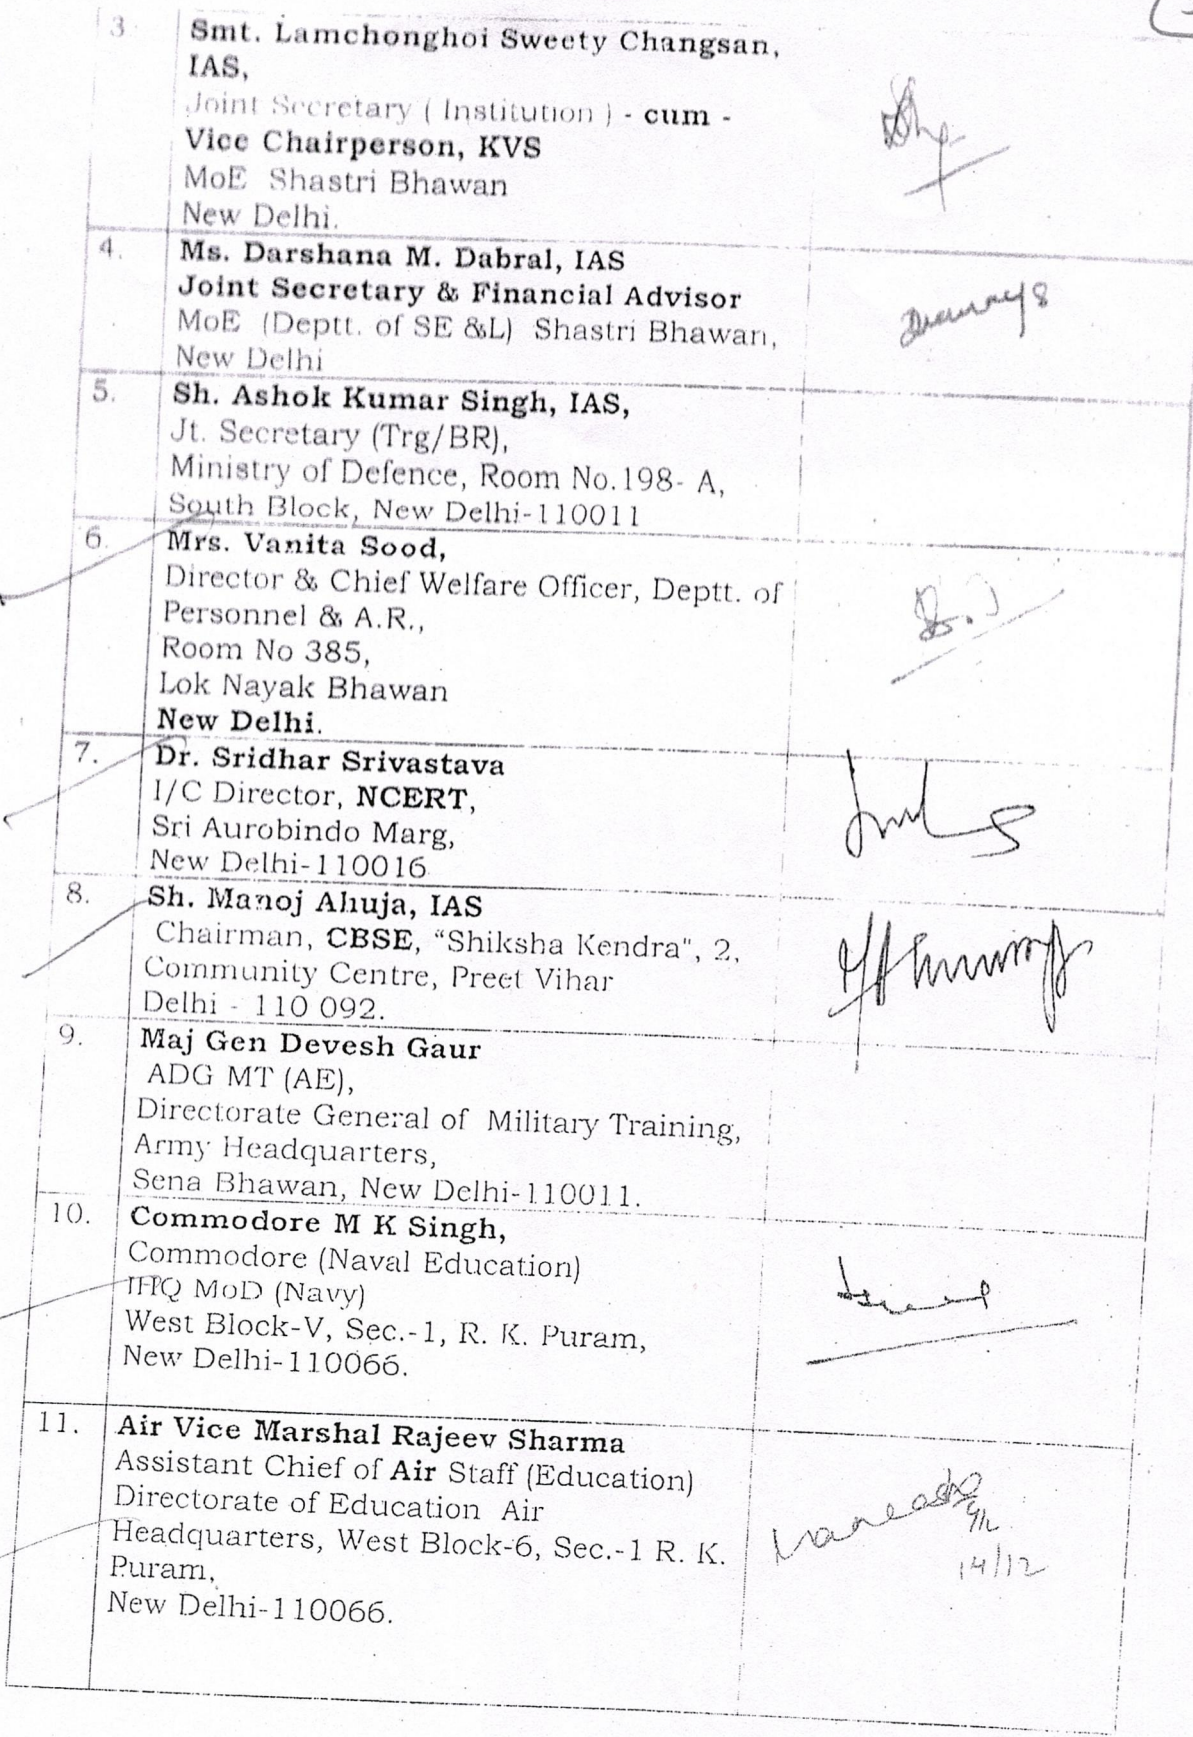 3. Smt. Lamchonghoi Sweety Changsan,
IAS,
Joint Secretary ( Institution ) - cum -
Vice Chairperson, KVS
MoE Shastri Bhawan
New Delhi.
4. Ms. Darshana M. Dabral, IAS
Joint Secretary & Financial Advisor
MoE (Deptt. of SE &L) Shastri Bhawan,
New Delhi
5. Sh. Ashok Kumar Singh, IAS,
Jt. Secretary (Trg/BR),
Ministry of Defence, Room No.198- A,
South Block, New Delhi-110011
6. Mrs. Vanita Sood,
Director & Chief Welfare Officer, Deptt. of
Personnel & A.R.,
Room No 385,
Lok Nayak Bhawan
New Delhi.
7. Dr. Sridhar Srivastava
I/C Director, NCERT,
Sri Aurobindo Marg,
New Delhi-110016
8. Sh. Manoj Ahuja, IAS
Chairman, CBSE, "Shiksha Kendra", 2,
Community Centre, Preet Vihar
Delhi - 110 092.
9. Maj Gen Devesh Gaur
ADG MT (AE),
Directorate General of Military Training,
Army Headquarters,
Sena Bhawan, New Delhi-110011.
10. Commodore M K Singh,
Commodore (Naval Education)
IHQ MoD (Navy)
West Block-V, Sec.-1, R. K. Puram,
New Delhi-110066.
11. Air Vice Marshal Rajeev Sharma
Assistant Chief of Air Staff (Education)
Directorate of Education Air
Headquarters, West Block-6, Sec.-1 R. K.
Puram,
New Delhi-110066.
14/12